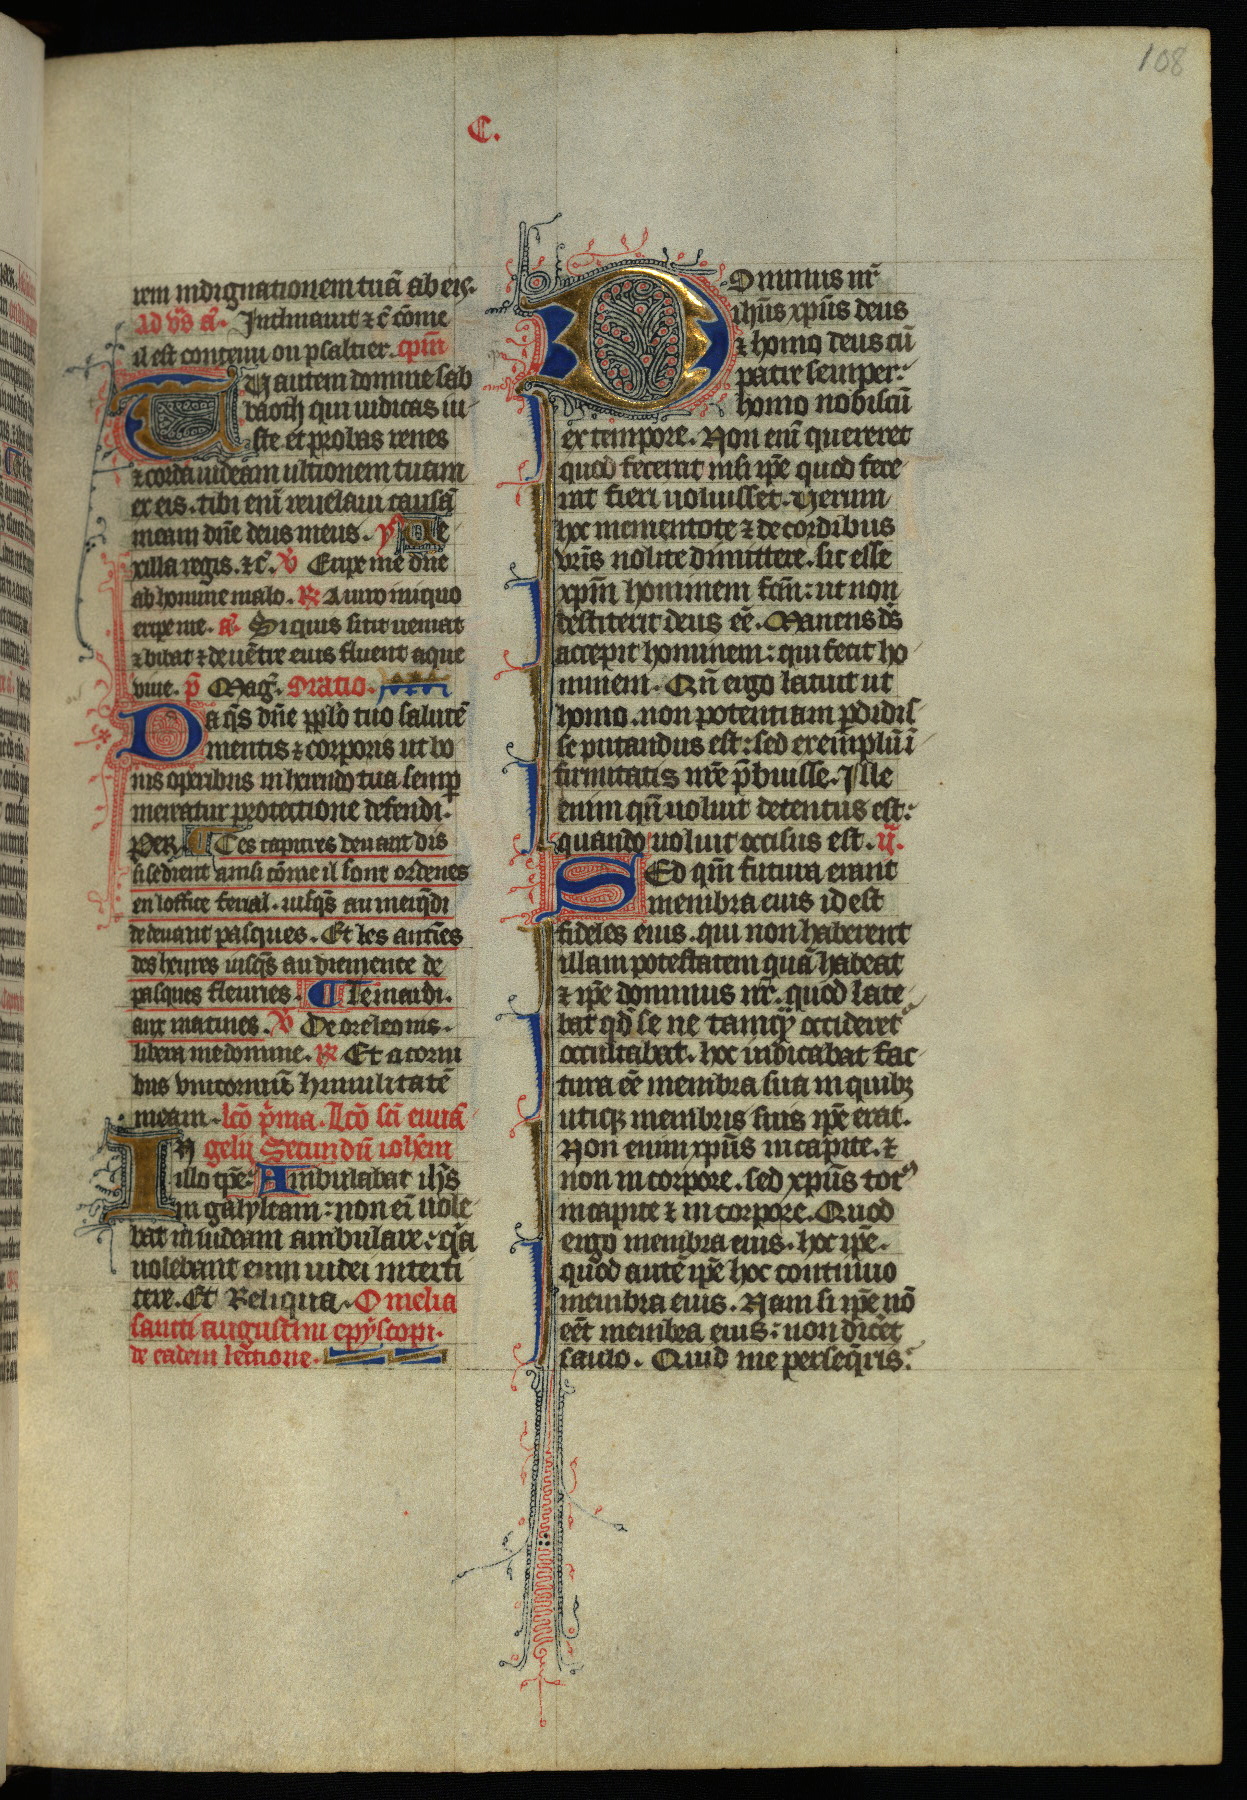 108
C.
rem indignationem tuā ab eis.
ad vs̄ ā. Inclinauit ⁊ c̄ cōme
il est contenu ou psaltier. cpīm
Tu autem domine sab
baoth qui iudicas iu
ste et probas renes
⁊ corda uideam ultionem tuam
ex eis. tibi enī reuelaui causā
meam dn̄e deus meus. yº Ve
xilla regis. ⁊c̄. V̄ Eripe me dn̄e
ab homine malo. R̄ A uiro iniquo
eripe me. ā. Si quis sitit ueniat
⁊ bibat ⁊ de uētre eius fluent aque
uiue. p̄ Mag̃. Oratio.
Da q̄s dn̄e pplo tuo salutē
mentis ⁊ corporis ut bo
nis operibus inherendo tua semp
mereatur protectione defendi.
Per. Ces capitres deuant dis
si sedient ainsi cōme il sont ordenes
en loffice ferial. iusq̄s au meiq̄di
de deuant pasques. Et les antīes
des heures iusq̄s au diemence de
pasques fleuries. Le mardi.
aux matines. V̄ De ore leonis.
libera me domine. R̄ Et a corni
bus vnicorniū humilitatē
meam. lc̄o p̄ma. Lc̄o sc̄i euuā
In gelij Secundū ioh̄em
illo tp̄e: Ambulabat ih̄s
in galyleam: non ei uole
bat in iudeam ambulare: q̄a
uolebant eum iudei interfi
cere. Et Reliqua. Omelia
sancti augustini epyscopi.
de eadem lectione.
Dominus nr̄
ih̄us xp̄us deus
⁊ homo deus cū
patre semper:
homo nobiscū
ex tempore. Non enī quereret
quod fecerat nisi ip̄e quod fece
rat fieri uoluisset. Verum
hoc mementote ⁊ de cordibus
vr̄is nolite dimittere. sic esse
xp̄m hominem fc̄m: ut non
destiterit deus eē. Manens ds̄
accepit hominem: qui fecit ho
minem. Qn̄ ergo latuit ut
homo. non potentiam pdidis
se putandus est: sed exemplū ī
firmitatis nr̄e p̄buisse. Ille
enim qn̄ uoluit detentus est:
quando uoluit occisus est. ij.
Sed qm̄ futura erant
membra eius id est
fideles eius. qui non haberent
illam potestatem quā habeat
⁊ ip̄e dominus nr̄. quod late
bat qd̄ se ne tamq̄ occideret
occultabat. hoc indicabat fac
tura eē membra sua in quibꝫ
utiqꝫ membris suis ip̄e erat.
Non enim xp̄us in capite. ⁊
non in corpore. sed xp̄us totꝰ
in capite ⁊ in corpore. Quod
ergo membra eius. hoc ip̄e.
quod autē ip̄e hoc continuo
membra eius. Nam si ip̄e nō
eēt membra eius: non dicēt
saulo. Quid me perseq̄ris: